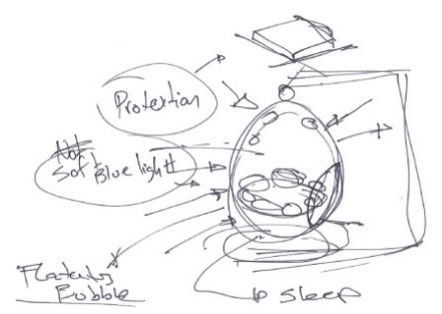 Protection
Not
Soft
Blue light
Floating
Bubble
sleep